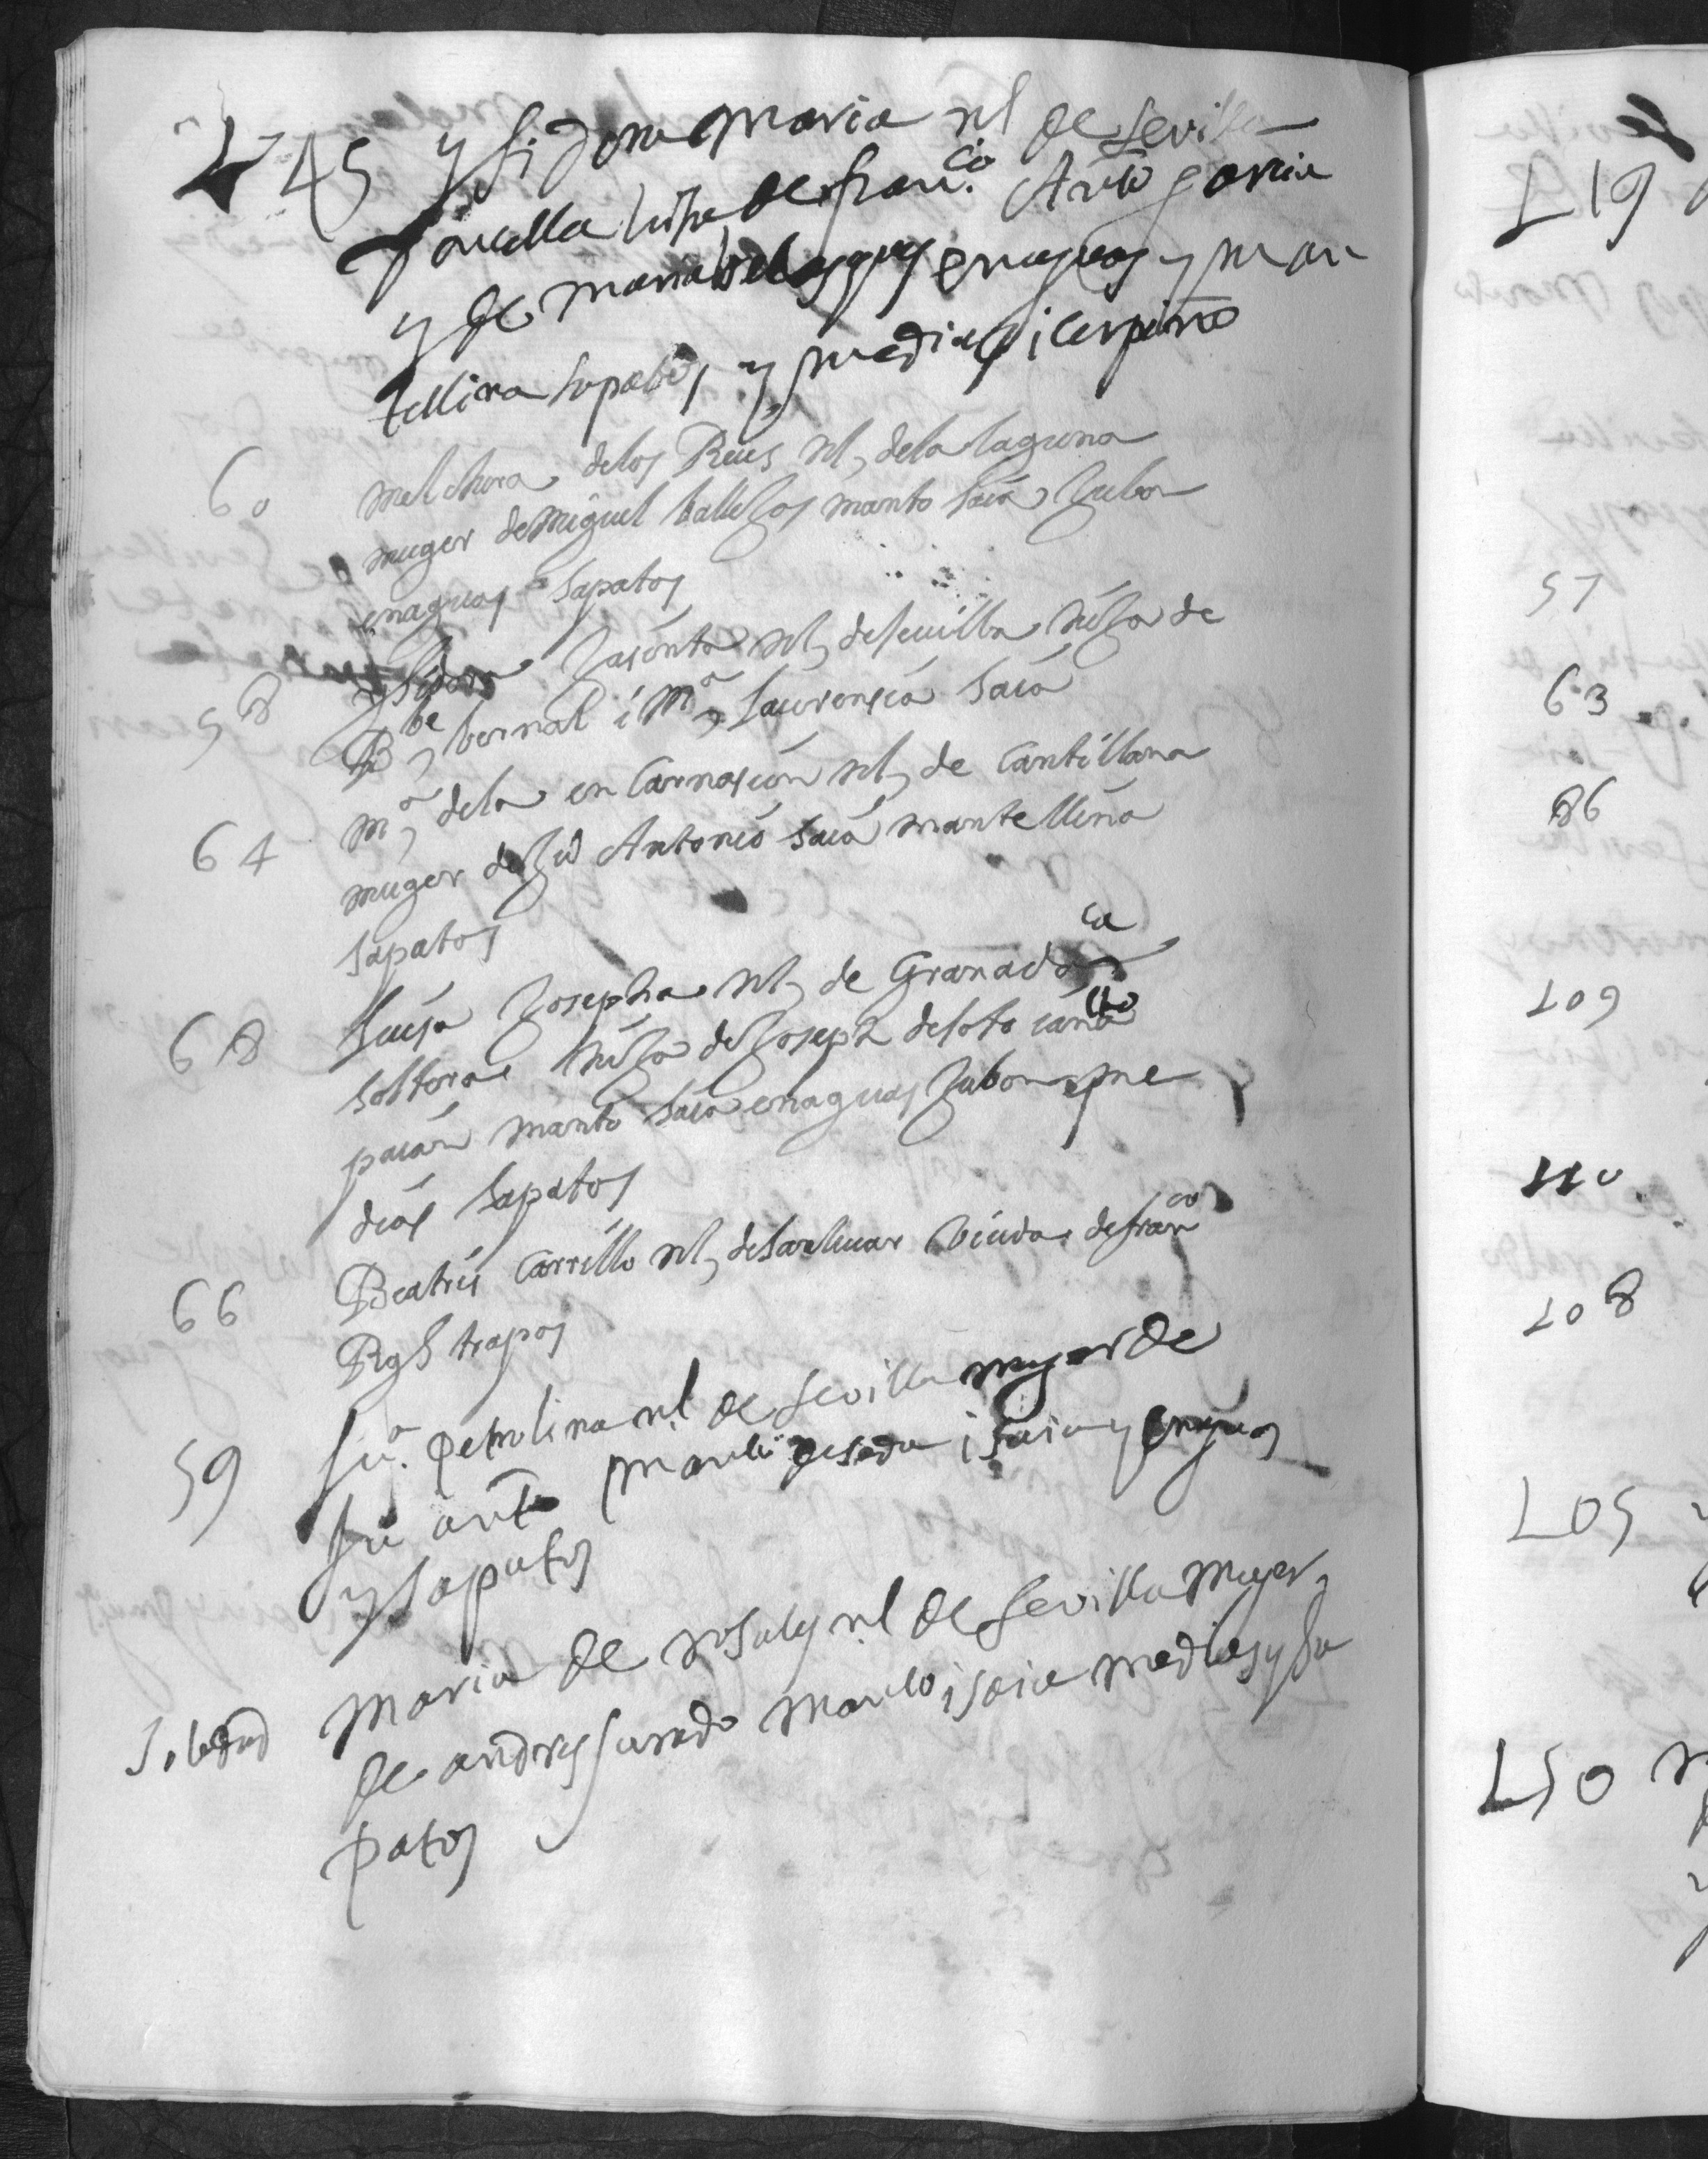 145 ysidora maria nl de sevilla
doncella hija de franco. Anto garcia
y de maria belasques enaguas y man
tellina sapatos y medias i corpiño
60 melchora delos Reies nl, dela laguna
muger de Miguel ballejos manto saia Jubon
enaguas sapatos
58 ysidora Jasinta nl, de seuilla hija de
Bbe, bernal i Ma, laurensia saia
64 Ma, dela encarnasion nl, de Cantillana
muger de Ju Antonio saia mantellina
sapatos
68 Luisa Josepha nl, de Granada
soltera hija de Joseph de soto i ana
paian manto saia enaguas Jubon me
dias sapatos
66 Beatris Carrillo nl, de sanlucar biuda de franco
Rgs trapos
59 Jua. petrolina nl de sevilla muger de
Ju anto manto i saia y enaguas
y sapatos
Soledad maria de rosales nl de sevilla muger
de andres Jurado manto i saia medias y sa
patos
L19
manto
57
63
86
109
110
108
105
150